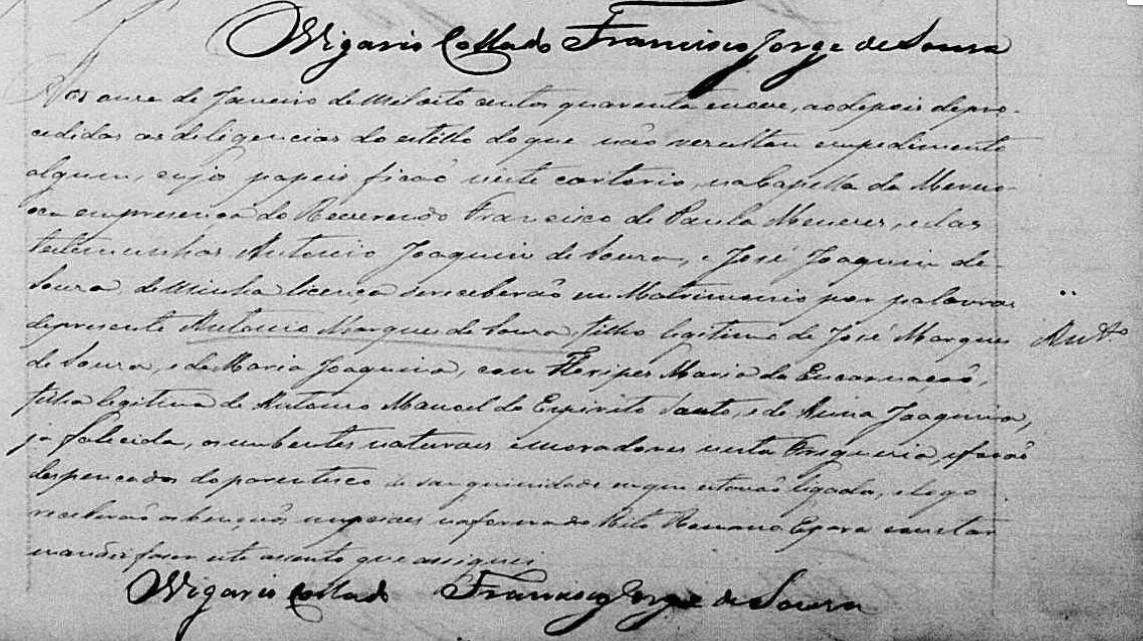 Vigario Collado Francisco Jorge de Sousa
Aos onze de Janeiro de mil oito centos quarenta e nove, ao depois depro-
cedidas as deligencias do estillo do que não resultou empedimento
algum, cujo papeis ficaõ neste cartorio, na Capella da Meruo-
ca em presença do Reverendo Francisco de Paula Menezes, e das
testemunhas Antonio Joaquim de Souza, e José Joaquim de
Souza de minha licença se receberaõ em Matrimonio por palavras
de presente Antonio Marques de Souza, filho legitimo de José Marques
Antº
de Souza, e de Maria Joaquina, com Fleripes Maria da Encarnaçaõ,
filha legitima de Antonio Manoel do Espirito Santo, e de Anna Joaquina,
ja falecida, os nubentes naturaes e moradores nesta Freguesia, e foraõ
despençados do parentesco de sanguinidade em que estavaõ ligados, e logo
receberaõ as bençaõs nupciaes na forma do Rito Romano E para constar
mandei fazer este assento que assignei
Vigario Collado Francisco Jorge de Souza